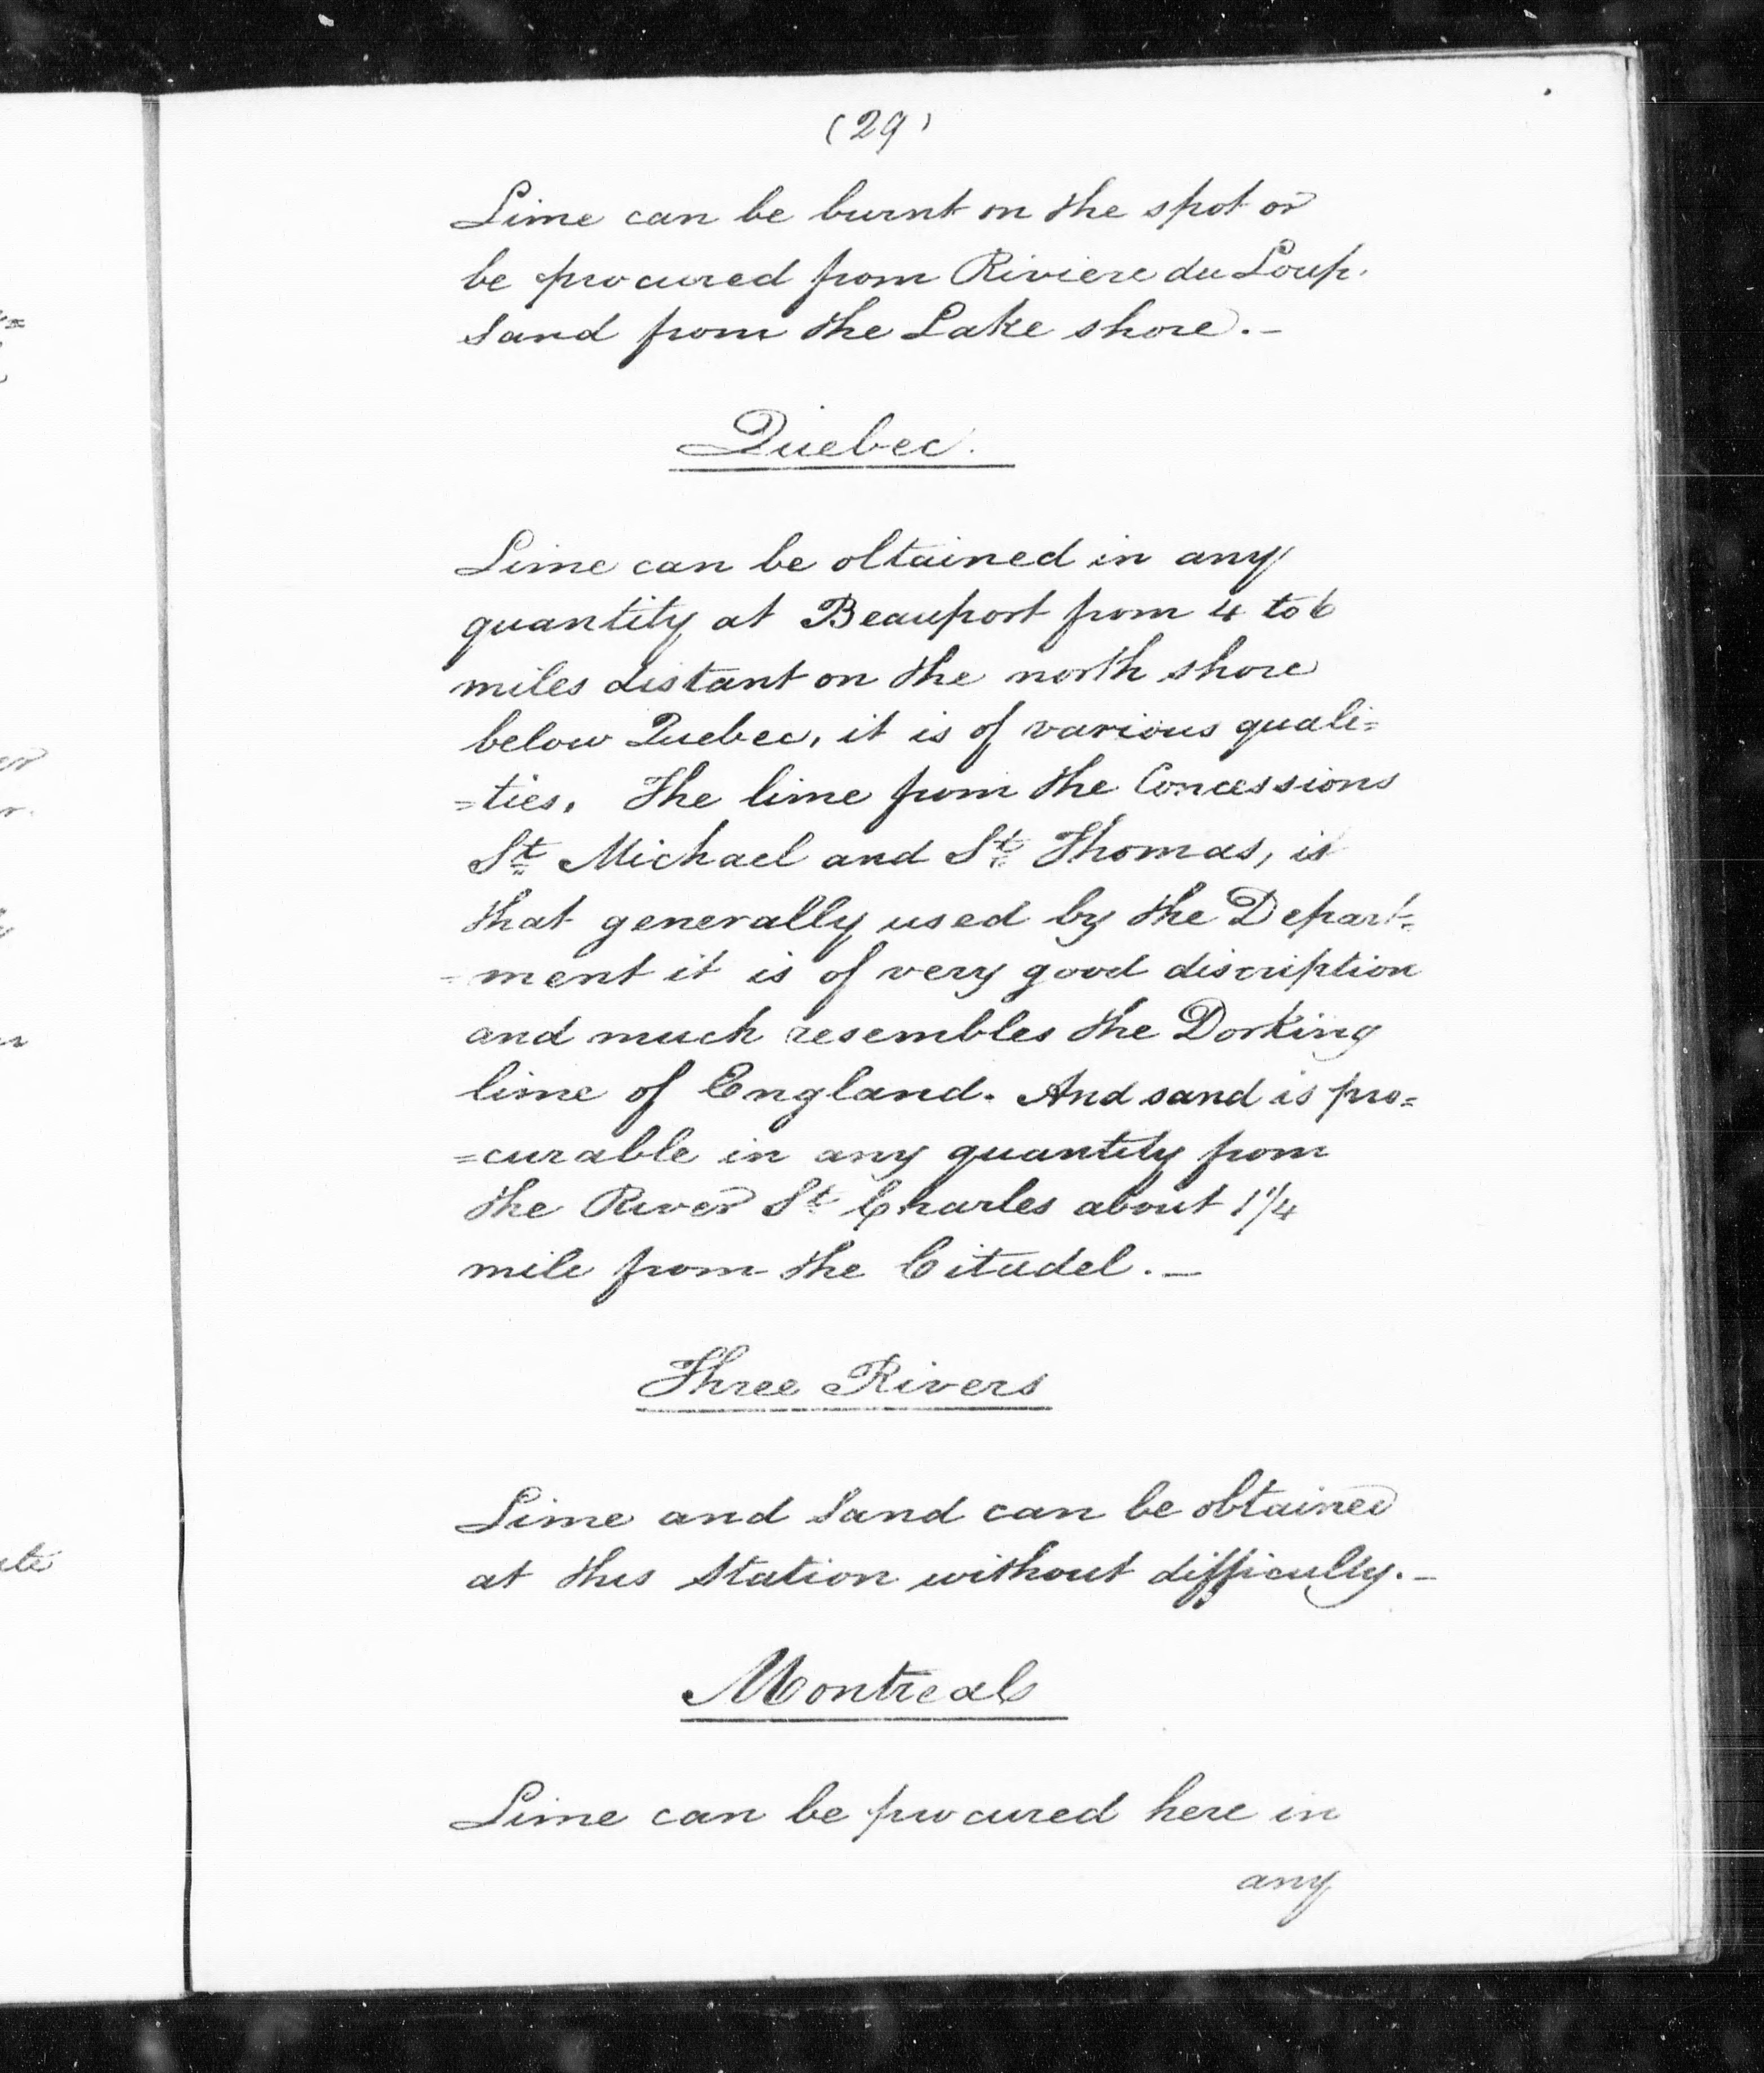 (29)
Lime can be burnt on the spot or
be procured from Riviere du Loup.
Sand from the Lake shore.-
Quebec.
Lime can be obtained in any
quantity at Beauport from 4 to 6
miles distant on the north shore
below Quebec, it is of various quali=
=ties. The lime from the Concessions
St Michael and St Thomas, is
that generally used by the Depart=
=ment it is of very good discription
and much resembles the Dorking
lime of England. And sand is pro=
=curable in any quantity from
the River St Charles about 1 1/4
mile from the Citadel.-
Three Rivers
Lime and Sand can be obtained
at this Station without difficulty.-
Montreal
Lime can be procured here in
any